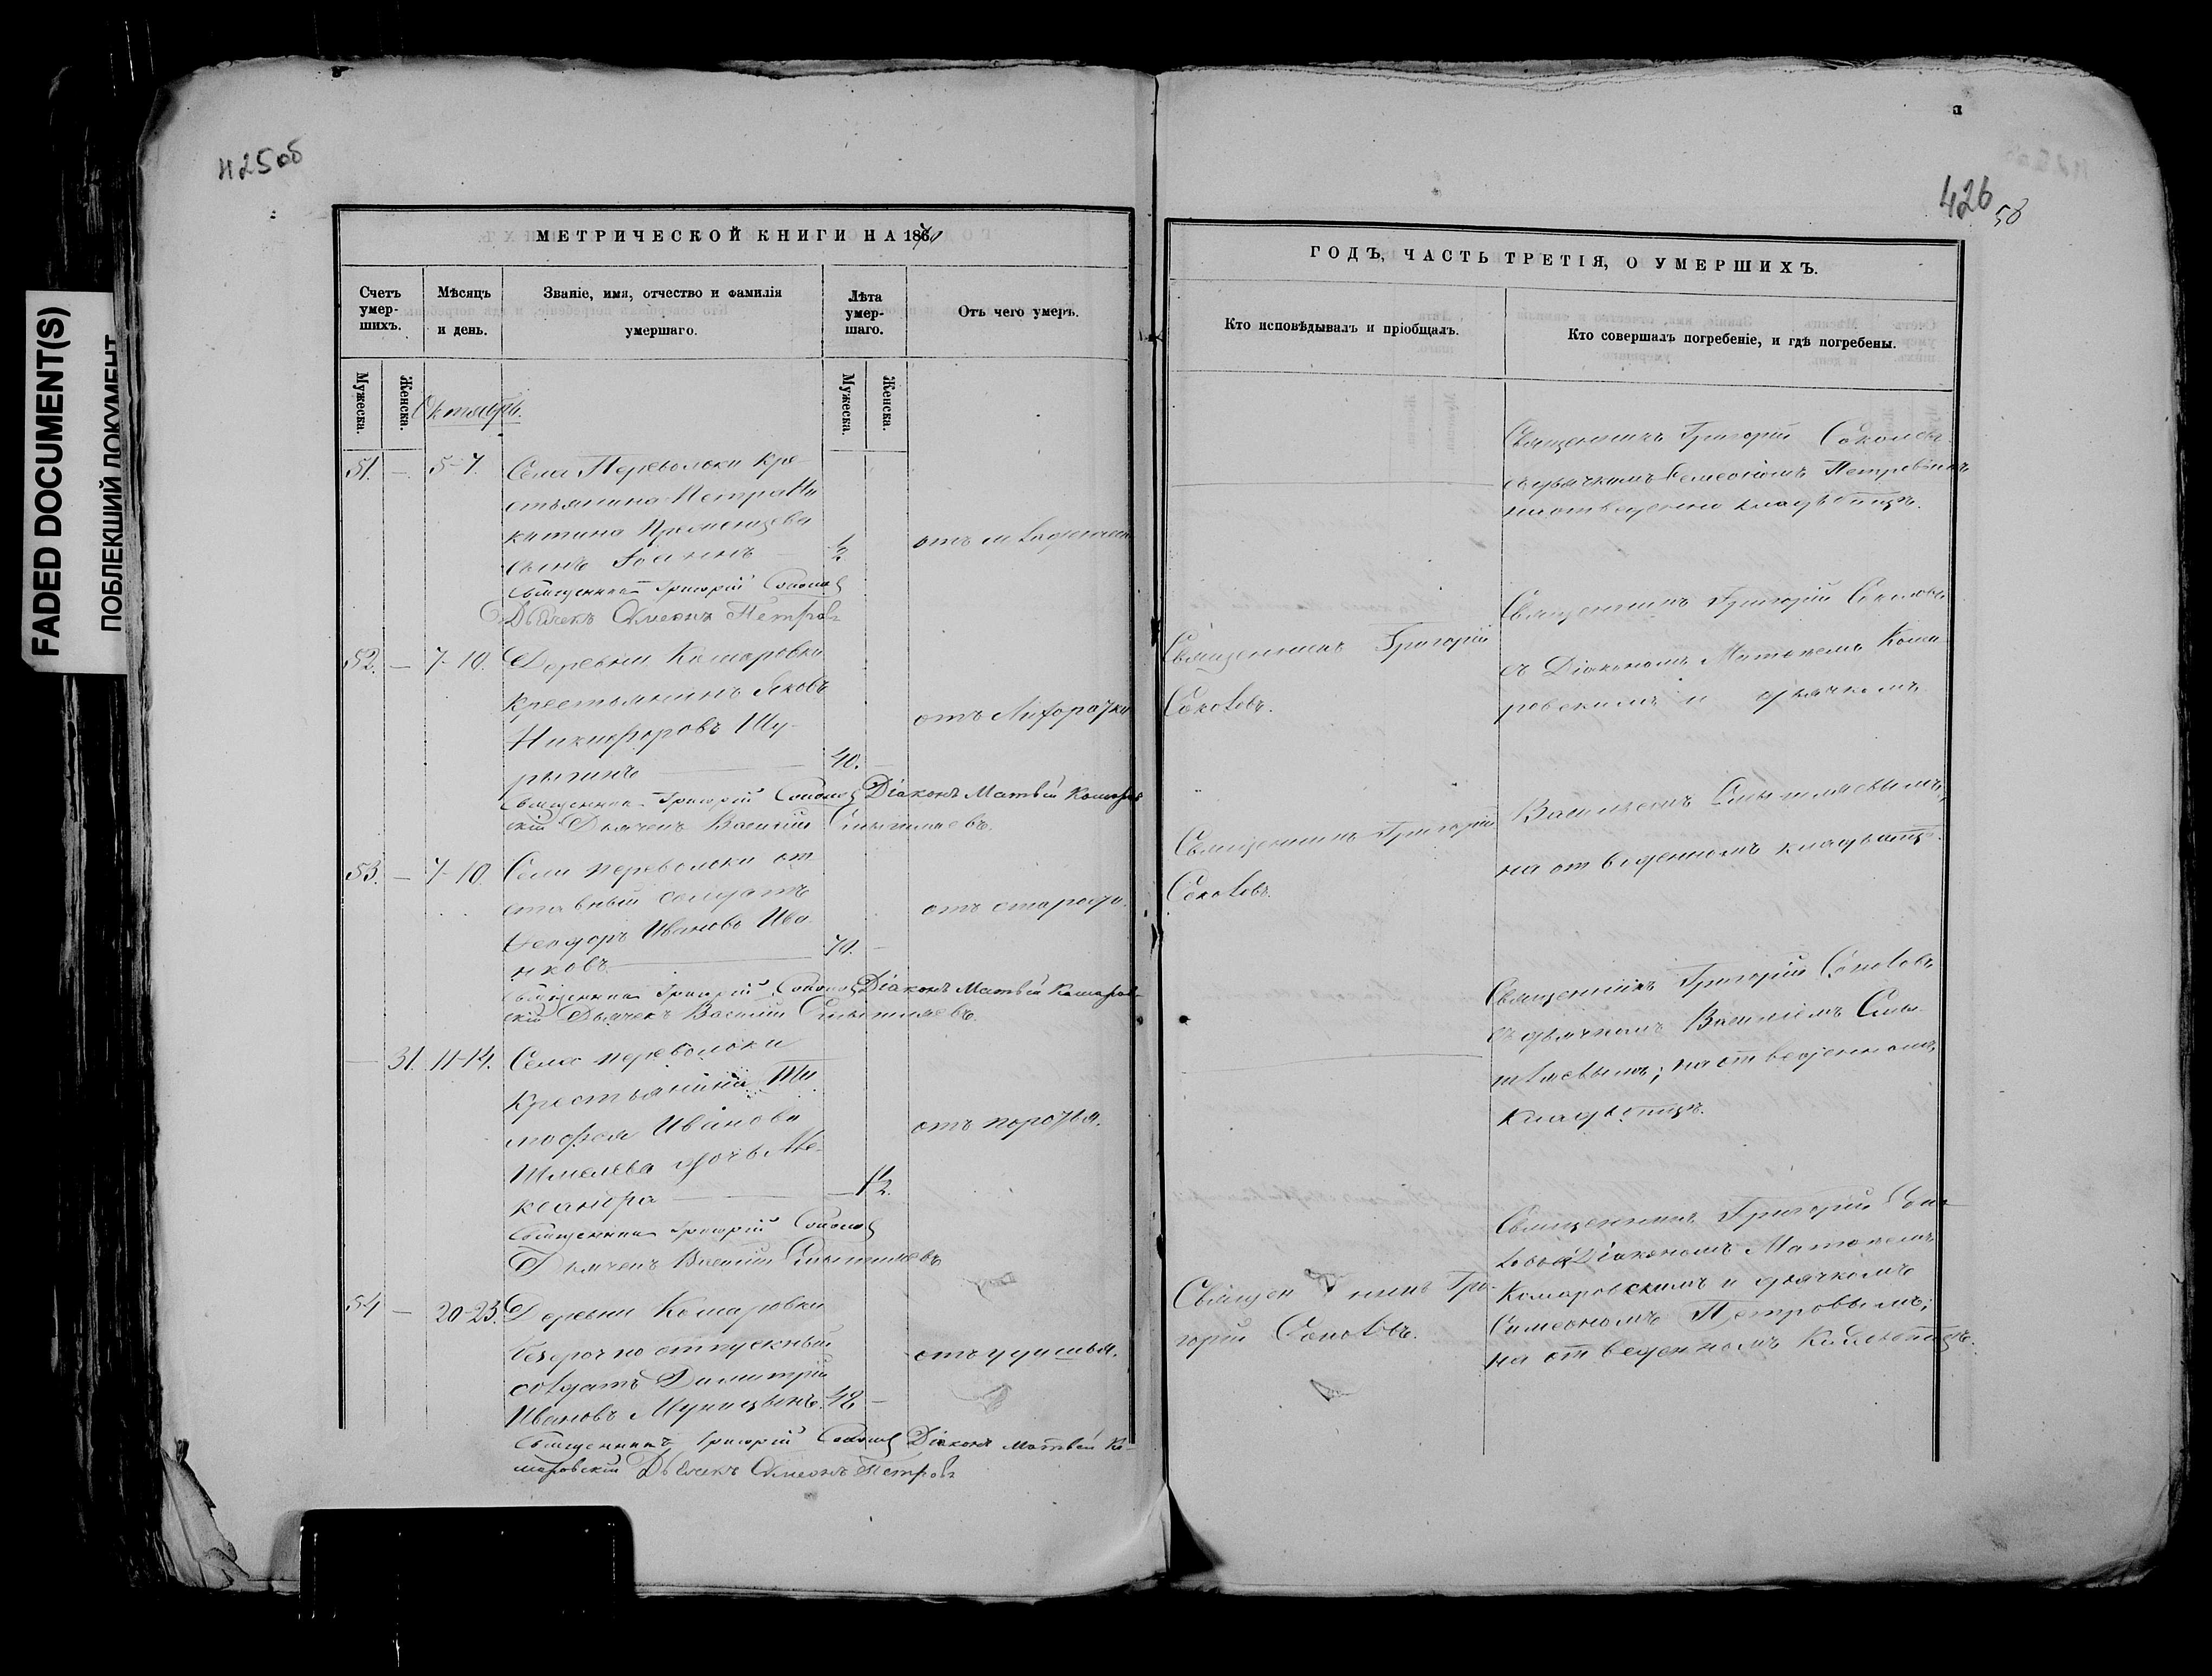 FADED DOCUMENT(S)
ПОБЛЕКШИЙ ДОКУМЕНТ
425об
426
58
МЕТРИЧЕСКОЙ КНИГИ НА 1870
Счетъ умер-шихъ.
Мѣсяцъ и день.
Званіе, имя, отчество и фамилія умершаго.
Лѣта умер-шаго.
Отъ чего умеръ.
Мужеска.
Женска.
Мужеска.
Женска.
Октябрь.
51. — 5-7. Села Переволоки кре-
стьянина Петра Ни
китина
сынъ Іоаннъ 1/2 отъ младенческ
Священникъ Григорій Соколов
Дьячекъ Симеонъ Петровъ
52. — 7-10. Деревни Комаровки
крестьянинъ Яковъ
Никифоровъ Шу-
рыгинъ — 40. отъ лихорадки
Священникъ Григорій Соколов Діаконъ Матвѣй Комаров
скій Дьячекъ Василій
53. — 7-10. Села Переволоки от
ставный солдатъ
Ѳеодоръ Ивановъ Ива
нковъ — 70. — отъ старости.
Священникъ Григорій Соколов Діаконъ Матвѣй Комаров-
скій Дьячекъ Василій
— 31. 11-14. Села Переволоки
крестьянина Ти
мофея Иванова
Шмелева дочь Але-
ксандра — 1/2. отъ
Священникъ Григорій Соколов
Дьячекъ Василій
54 — 20-23. Деревни Комаровки
безсрочно отпускный
солдатъ Димитрій
Ивановъ 48 — отъ удушья.
Священникъ Григорій Соколов Діаконъ Матвѣй Ко-
маровскій Дьячекъ Симеонъ Петровъ
ГОДЪ, ЧАСТЬ ТРЕТІЯ, О УМЕРШИХЪ.
Кто исповѣдывалъ и пріобщалъ.
Кто совершалъ погребеніе, и гдѣ погребены.
Священникъ Григорій Соколовъ
съ дьячкомъ Симеономъ Петровымъ
на отведенномъ кладбищѣ.
Священникъ Григорій
Соколовъ.
Священникъ Григорій Соколовъ
съ Діакономъ Матвѣемъ Кома-
ровскимъ и дьячкомъ
Священникъ Григорій
Соколовъ.
Василіемъ
на отведенномъ кладбищѣ.
Священникъ Григорій Соколовъ
съ дьячкомъ Василіемъ
на отведенномъ
кладбищѣ.
Священникъ Гри-
горій Соколовъ.
Священникъ Григорій Соко-
ловъ съ Діакономъ Матвѣемъ
Комаровскимъ и дьячкомъ
Симеономъ Петровымъ;
на отведенномъ кладбищѣ.